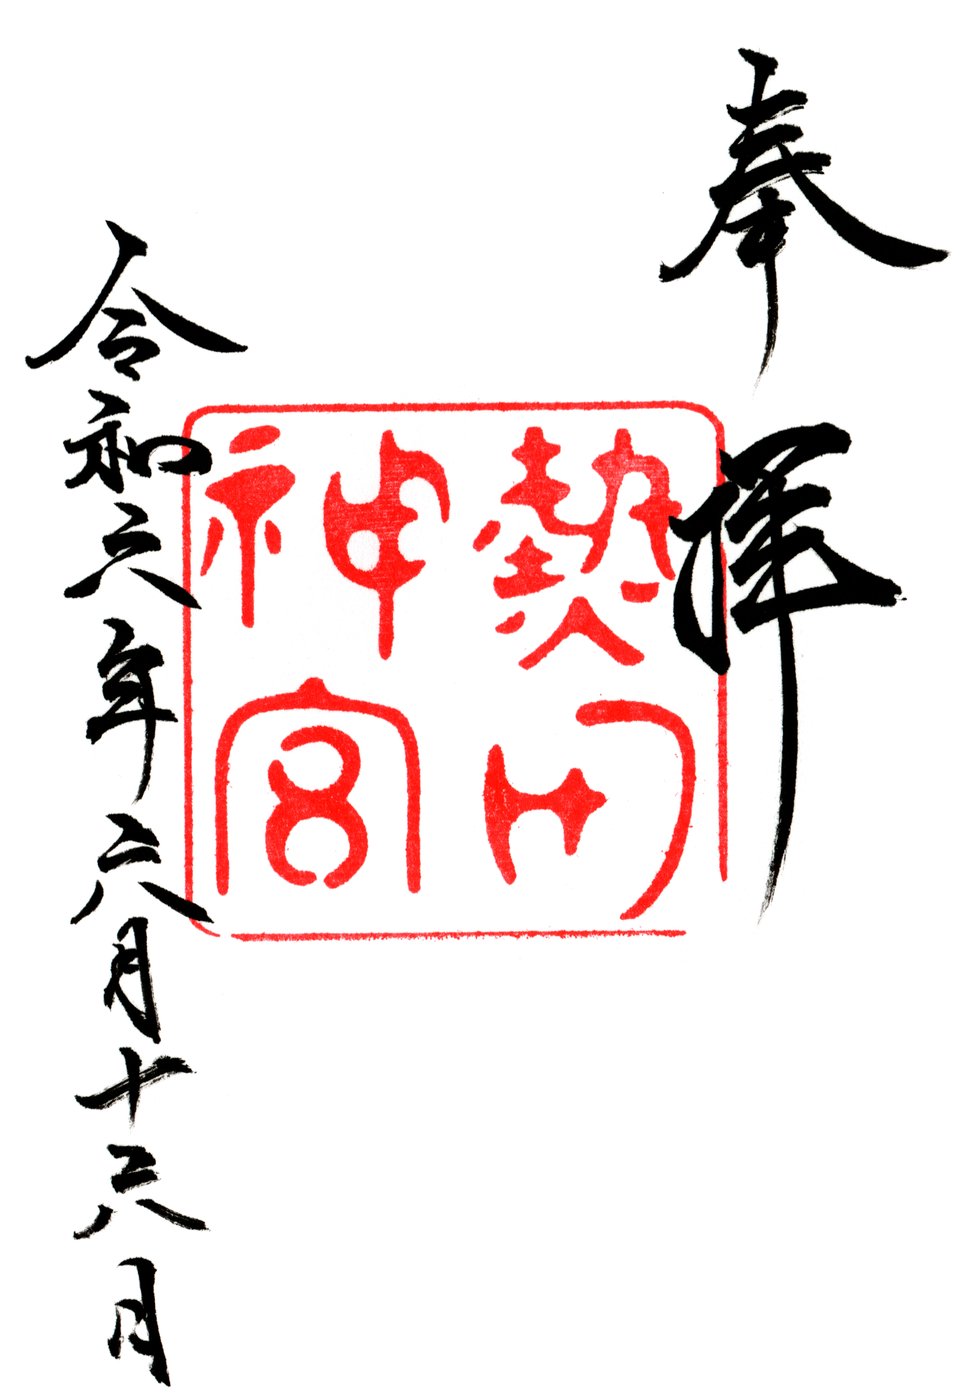 奉拝
熱田
神宮
令和六年六月十六日